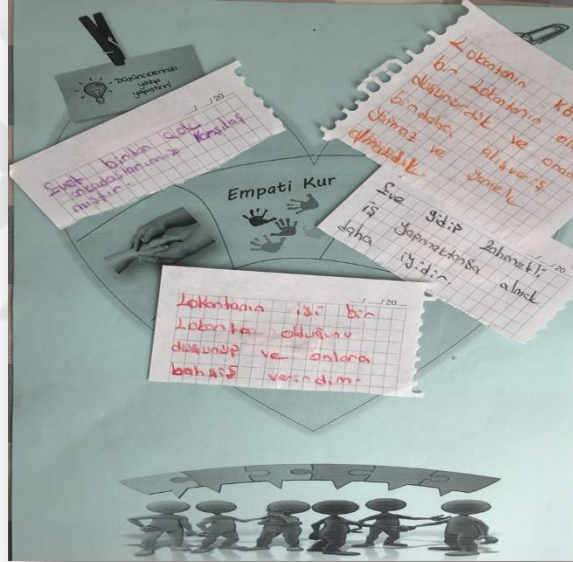 Düşüncelerinizi
yazıp
yapıştırın!
.../.../20....
Evet binlan çok
arkadaşlarımız karşılaş
mıştır.
Lokantanın kö
bir Lokantanın ol
düşünürdük ve onda
bir daha alışveriş
yapmaz ve yemek
almazdık
Empati Kur
.../.../20....
Eve gidip zahmetli
iş yapmaktansa almak
daha iyidir.
.../.../20....
Lokantanın iyi bir
Lokanta olduğunu
düşünüp ve onlara
bahşiş verirdim.